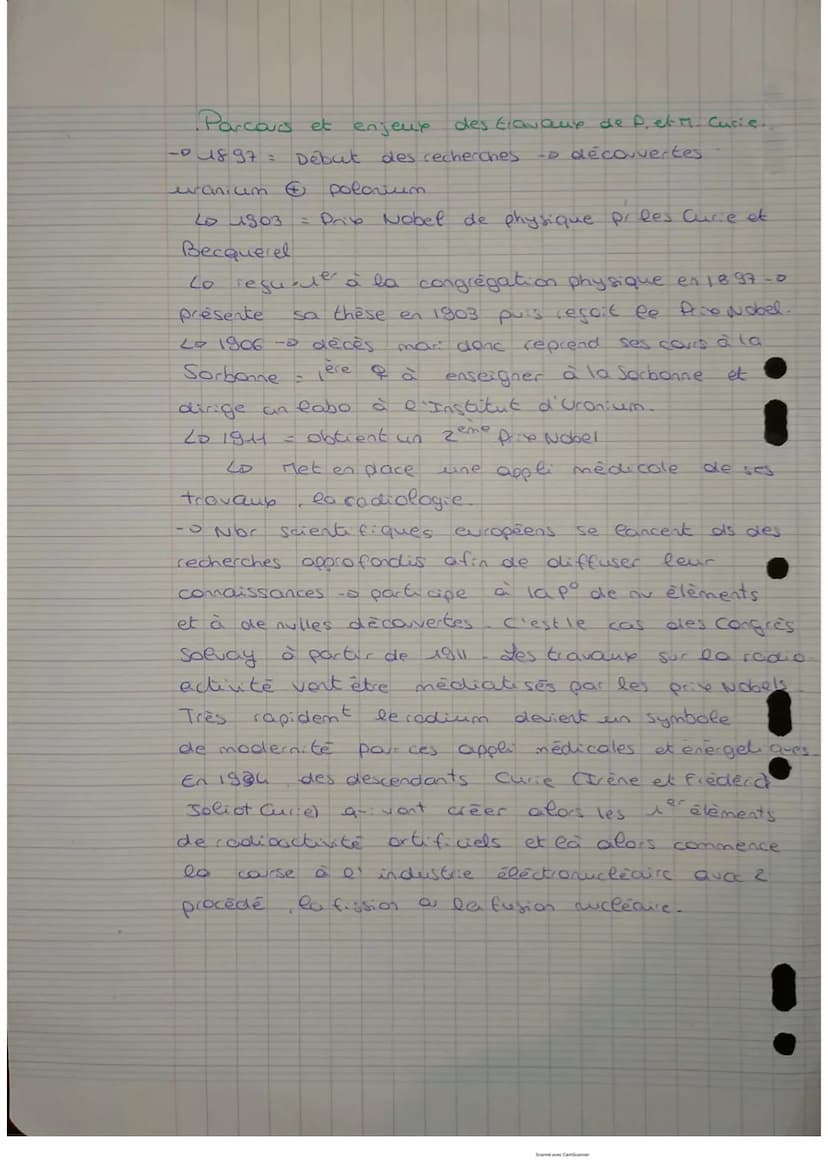 . Parcours et enjeux des travaux de P. et M. Curie.
-> 1897 = Début des recherches -> découvertes
uranium ⊕ polonium
↳ 1903 = Prix Nobel de physique pr les Curie et
Becquerel
↳ reçu 1er à la congrégation physique en 1897 ->
présente sa thèse en 1903 puis reçoit le Prix Nobel.
↳ 1906 -> décès mari donc reprend ses cours à la
Sorbonne = 1ère ♀ à enseigner à la Sorbonne et
dirige un labo à l'Institut d'Uranium.
↳ 1911 = obtient un 2eme Prix Nobel
↳ Met en place une appli médicale de ses
travaux, la radiologie.
-> Nbr scientifiques européens se lancent ds des
recherches approfondis afin de diffuser leur
connaissances -> participe à la p° de nv élèments
et à de nvlles découvertes. C'est le cas des Congrès
Solvay à partir de 1911. Les travaux sur la radio
activité vont être médiatisés par les prix Nobels
Très rapidemt le radium devient un symbole
de modernité par ces appli médicales et énergétiques
En 1934, des descendants Curie (Irène et Fréderic
Joliot Curie) q- vont créer alors les 1er élèments
de radioactivité artificiels et là alors commence
la course à l'industrie éléctronucléaire avec 2
procédé, la fission ou la fusion nucléaire.
Scanné avec CamScanner